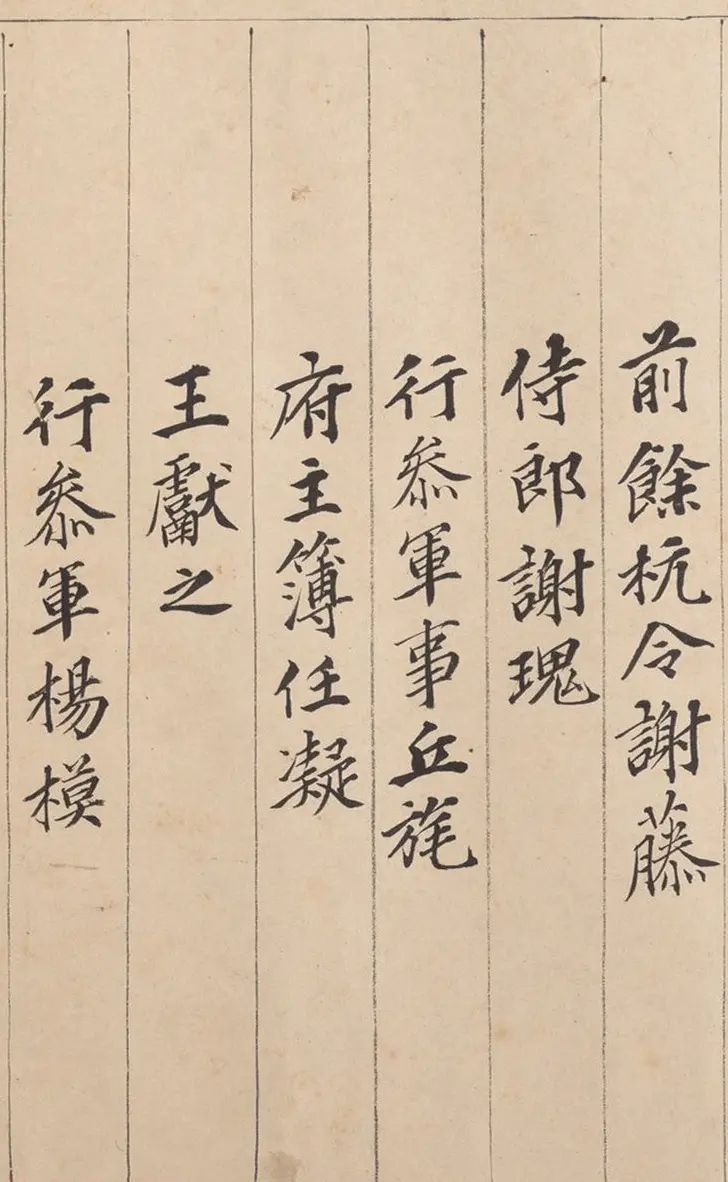 前餘杭令謝藤
侍郎謝瑰
行叅軍事丘旄
府主簿任凝
王獻之
行叅軍楊模